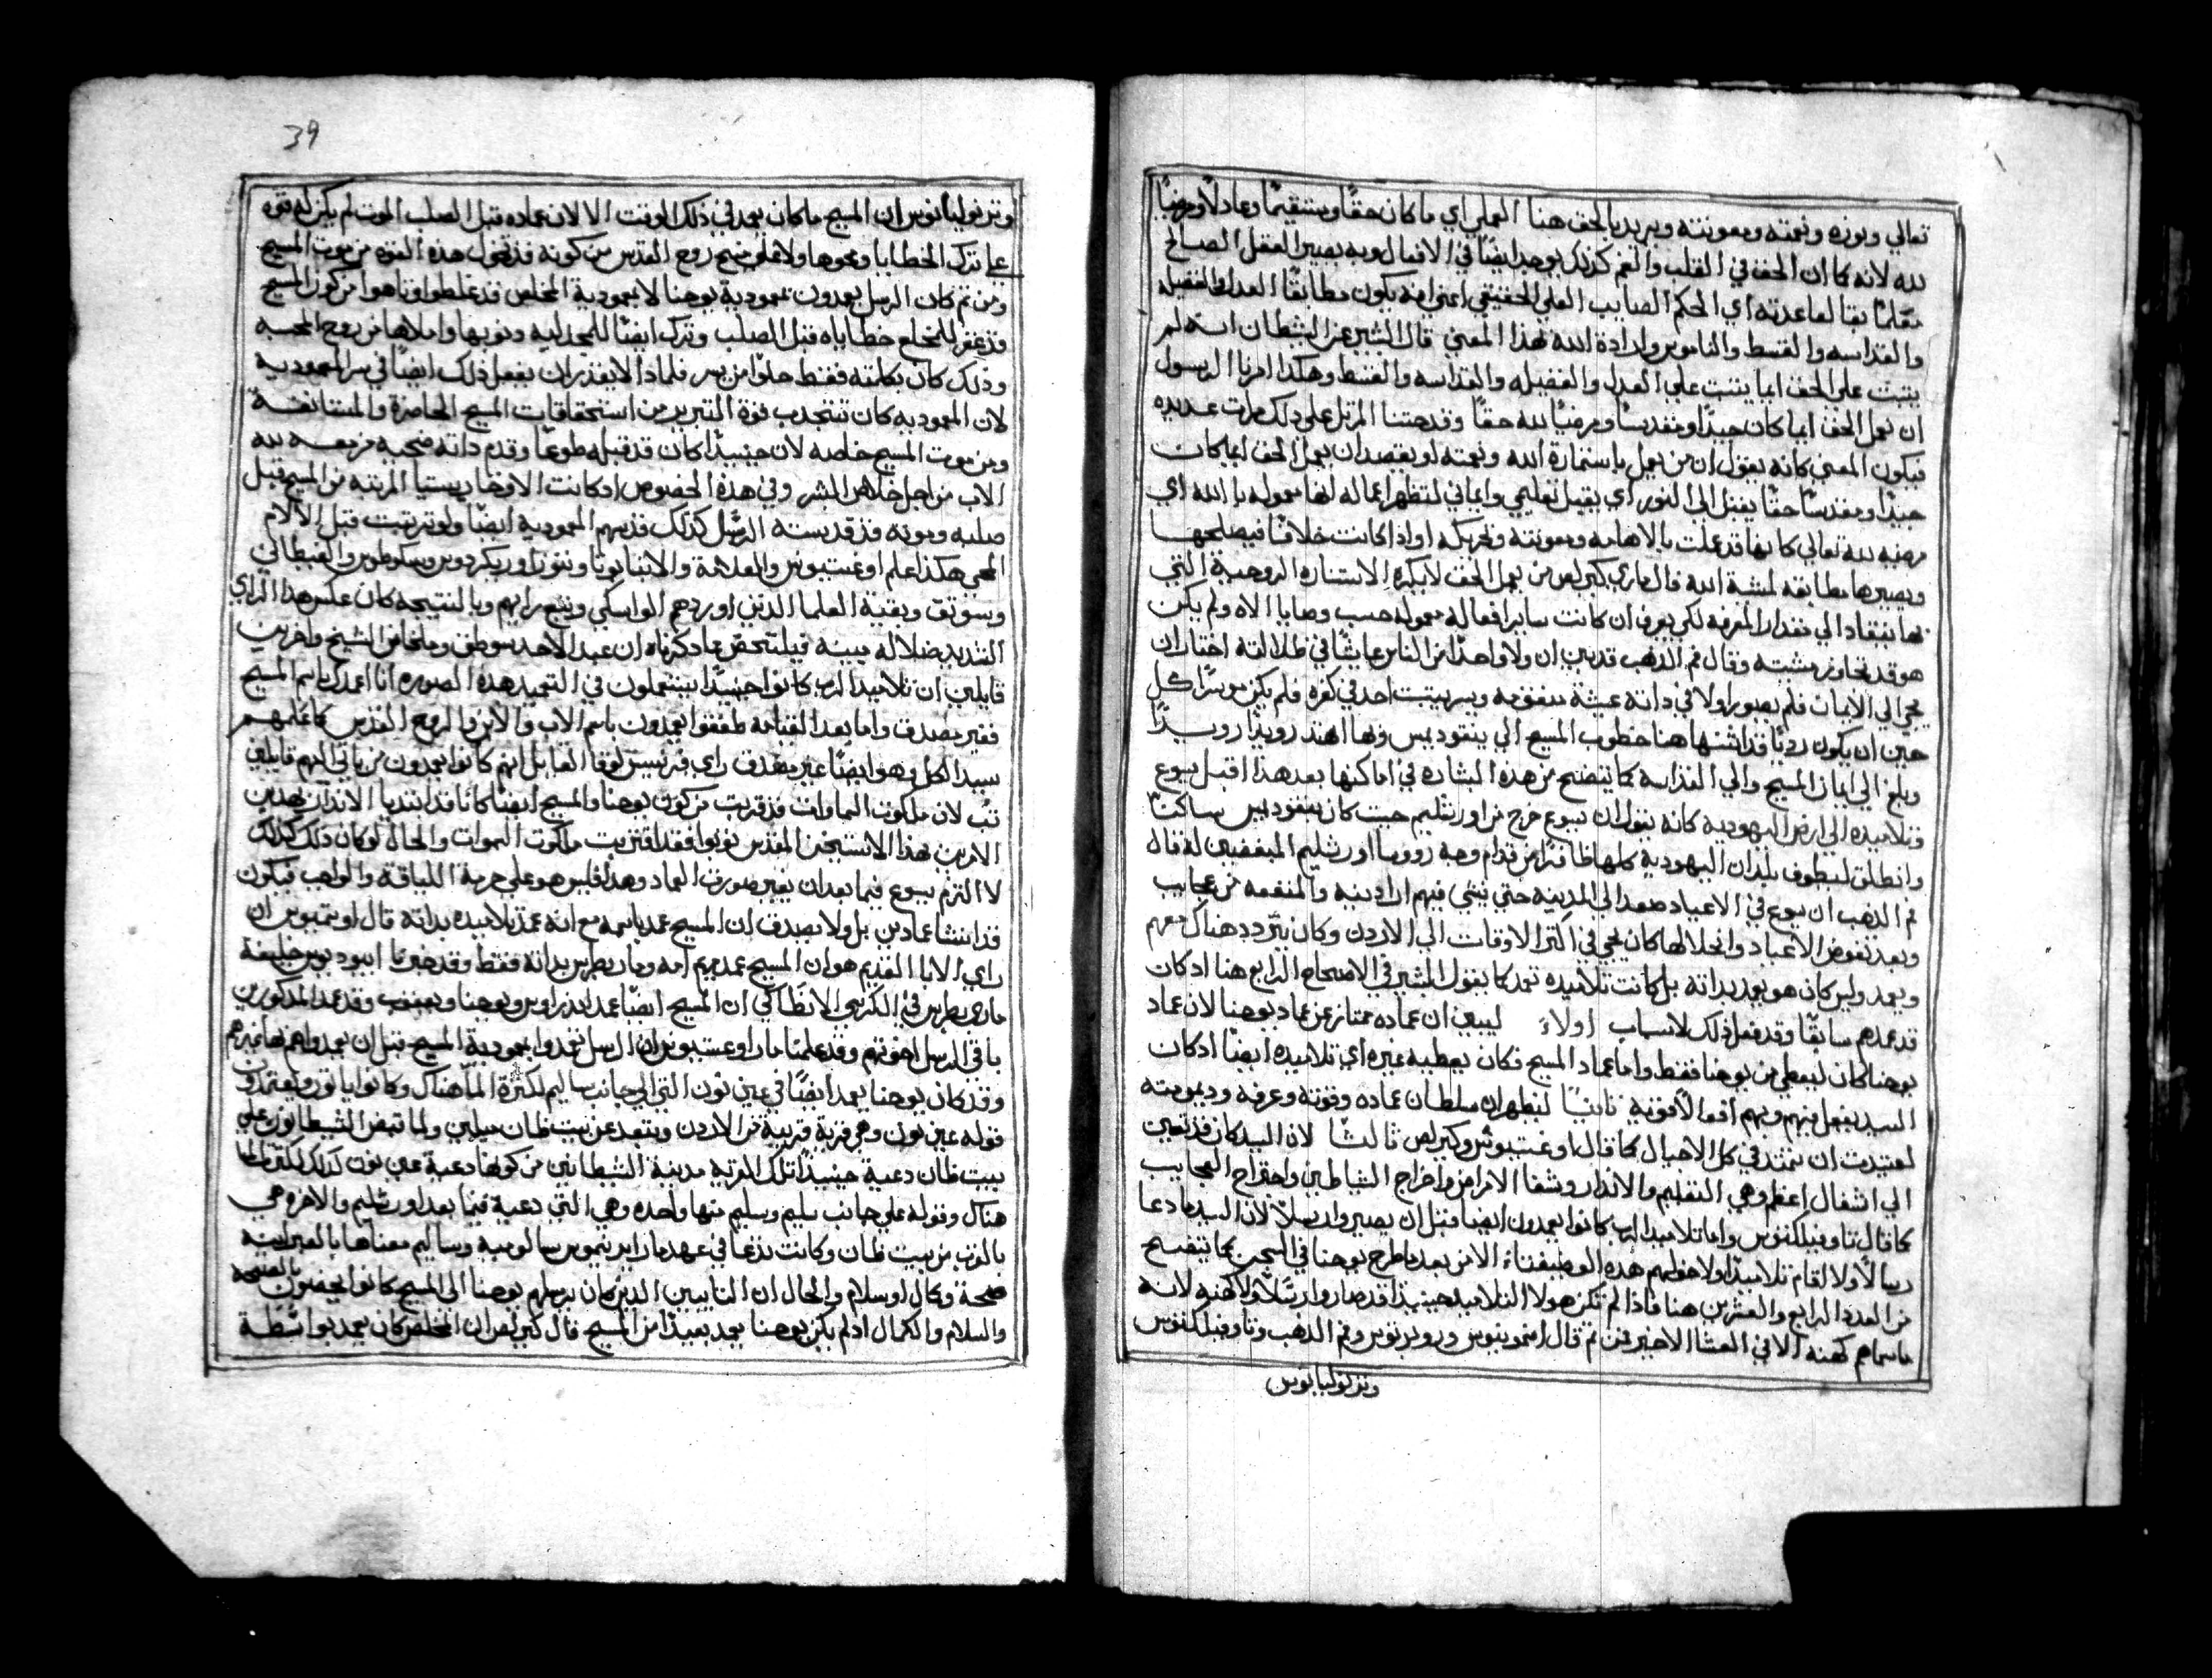 تعالي ونوره ونعمته ومعونته ويريد بالحق هنا العملي اي ما كان حقًا ومستقيمًا وعادلًا ومرضيًا
لله لانه كما ان الحق في القلب والفم كذلك يوجد ايضًا في الافعال وبه يصير العقل الصالح
والقداسه والقسط والناموس وارادة الله بهذا المعني قال البشير عن الشيطان انه لم
يثبت علي الحق ايما يثبت علي العدل والفضيله والقداسه والقسط وهكذا امرنا الرسول
ان نعمل الحق ايما كان جيدًا ومقدسًا ومرضيًا لله حقًا وقد حثنا المرتل علي ذلك مرات عديده
فيكون المعني كانه يقول ان من يعمل باستنارة الله ونعمته او يقصد ان يعمل الحق ايما كان
جيدًا ومقدسًا حقًا يقبل الي النور اي يقبل تعليمي وايماني لتظهر اعماله انها معموله بالله اي
مرضيه لله تعالي كانها قد عملت بالهامه ومعونته وتحريكه او اذا كانت خلافًا فيصلحها
ويصيرها مطابقه لمشية الله قال ماري كيرلص من يعمل الحق لا يكره الاستناره الروحية التي
بها ينقاد الي مقدار المعرفه لكي يعرف ان كانت ساير افعاله معموله حسب وصايا الاه ولم يكن
هو قد تجاوز مشيته وقال فم الذهب قد بين ان ولا واحدًا من الناس عايشًا في ضلالته اختار ان
يجي الي الايمان فلم يصور اولا في ذاته عيشة مقومه ويسر يثبت احد في كفره فلم يكن موثرًا كل
حين ان يكون رديًا قد انتهي هنا خطوب المسيح الي نيقوديمس وبها اهتد رويدًا رويدًا
وبلغ الي ايمان المسيح والي القداسه كما يتضح من هذه البشاره في اماكنها بعد هذا اقبل يسوع
وتلاميذه الي ارض اليهوديه كانه يقول ان يسوع خرج من اورشليم حيث كان نيقوديمس ساكنًا
وانطلق ليطوف بلدان اليهودية كلها ظافرًا من قدام وجه رووسا اورشليم المبغضين له قال
فم الذهب ان يسوع في الاعياد صعد الي المدينه حتي ينشي فيهم اراد دينه والمنفعه من عجايب
وبعد تقوض الاعياد وانحلالها كان يجي في اكثر الاوقات الي الاردن وكان يتردد هناك معهم
ويعمد وليس كان هو يعمد بذاته بل كانت تلاميذه تعمد كما يقول البشير في الاصحاح الرابع هنا اذ كان
قد عمدهم سابقًا وقد فعل ذلك لاسباب اولاء ليبين ان عماده ممتاز عن عماد يوحنا لان عماد
يوحنا كان ليعطي من يوحنا فقط واما عماد المسيح فكان يعطيه غيره اي تلاميذه ايضًا اذ كان
السيد يفعل فيهم وبهم افعالًا قويه ثانيًا ليظهر ان سلطان عماده وقوته وعرفه وديمومته
لعتيدت ان تمتد في كل الاجيال كما قال اوغستينوس وكيرلص ثالثًا لان السيد كان قد تعين
الي اشغال اعظم وهي التعليم والانذار وشفا الامراض واخراج الشياطين واجتراح العجايب
كما قال تاوفيلكتوس واما تلاميذ الرب كانوا يعمدون ايضا قبل ان يصيروا رسلًا لان السيد ما دعا
رسالًا ولا اقام تلاميذًا ولا حولهم هذه الوظيفة الا من بعد ما طرح يوحنا في السجن كما يتضح
من العدد الرابع والعشرين هنا فاذا لم تكن هولا التلاميذ حينيذ قد صاروا رسلًا ولا كهنه لانه
ما سماهم كهنه الا في العشا الاخير فمن ثم قال وفم الذهب وتاوفيلكتوس
وترتوليانوس
39
وترتوليانوس ان المسيح ما كان يعمد في ذلك الوقت الا لان عماده قبل الصلب الموت لم يكن له قوه
علي ترك الخطايا ومحوها ولا علي منح روح القدس من كونه قد تخول هذه القوه من موت المسيح
ومن ثم كان الرسل يعمدون بمعمودية يوحنا لا بمعمودية المخلص قد غلطوا وتاهوا من كون المسيح
قد غفر للمخلع خطاياه قبل الصلب وترك ايضًا للمجدليه ذنوبها واملاها من روح المحبه
وذلك كان بكلمته فقط خلوًا من سر فلماذا لا يقدر ان يفعل ذلك ايضًا في سر المعموديه
لان المعموديه كان تنجذب قوة التبرير من استحقاقات المسيح الحاضرة والمستانفة
ومن موت المسيح خاصه لان حينيذًا كان قد قبله طوعًا وقدم ذاته ضحيه مرضيه لله
الاب من اجل خلاص البشر وفي هذه الخصوص اذ كانت الاوخاريستيا المرتبه من المسيح قبل
صلبه وموته قد قدسته الرسل كذلك قدسهم المعمودية ايضًا ولو ترتبت قبل الالام
وبقية العلما الذين اوردهم الواسكي وتبع رايهم وبالنتيجه كان عكس هذا الراي
قايلين ان تلاميذ الرب كانوا حينيذًا يستعملون في التعميد هذه الصوره انا اعمدك باسم المسيح
فغير مصدق واما بعد القيامه طفقوا يعمدون باسم الاب والابن والروح القدس كما علمهم
سيد الكل وهو ايضًا غير مصدق راي فرنسيس لوقا القايل انهم كانوا يعمدون من ياتي اليهم قايلين
تب لان ملكوت السماوات قد قربت من كون يوحنا والمسيح ايضًا كانا قد ابتديا الانذار بهذين
الامرين بهذا الاستيخن المقدس توبوا فقد اقتربت ملكوت السموات والحال لو كان ذلك كذلك
لا التزم يسوع فيما بعد ان يغير صورة العماد وهذا فليس هو علي حرية اللياقة والواجب فيكون
قد انشا عمادين بل ولا يصدق ان المسيح عمد باسمه مع انه عمد تلاميذه بذاته قال اوتيميوس ان
راي الابا القديم هو ان المسيح عمد مريم امه ومار بطرس بذاته فقط وقد خبرنا ايووديوس خليفة
ماري بطرس في الكرسي الانطاكي ان المسيح ايضًا عمد اندراوس ويوحنا ويعقوب وقد عمد المذكورين
باقي الرسل اخوتهم وقد علمنا مار اوغستينوس ان الرسل تعمدوا بمعمودية المسيح قبل ان يعمدوا هم بها غيرهم
وقد كان يوحنا يعمد ايضًا في عين نون التي الي جانب ساليم لكثرة الما هناك وكانوا ياتون ويعتمدون
قوله عين نون وهي قرية قريبة من الاردن وتبعد عن بيت طان ميلين ولما قبض الشيطانون علي
بيت طان دعية حينيذًا تلك القريه مدينة الشيطانين من كونها دعية عين نون كذلك لكثرة الما
هناك وقوله علي جانب سليم وسليم منها واحده وهي التي دعية فيما بعد اورشليم والاخره هي
بالقرب من بيت طان وكانت تدعا في عهد مار ايرنيموس سالوميه وساليم معناها بالعبرانيه
صحة وكمال او سلام والحال ان التايبين الذين كان يرسلهم يوحنا الي المسيح كانوا يحضون بالصحه
والسلام والكمال اذ لم يكن يوحنا يعمد بعيدًا من المسيح قال كيرلص ان المخلص كان يعمد بواسطة